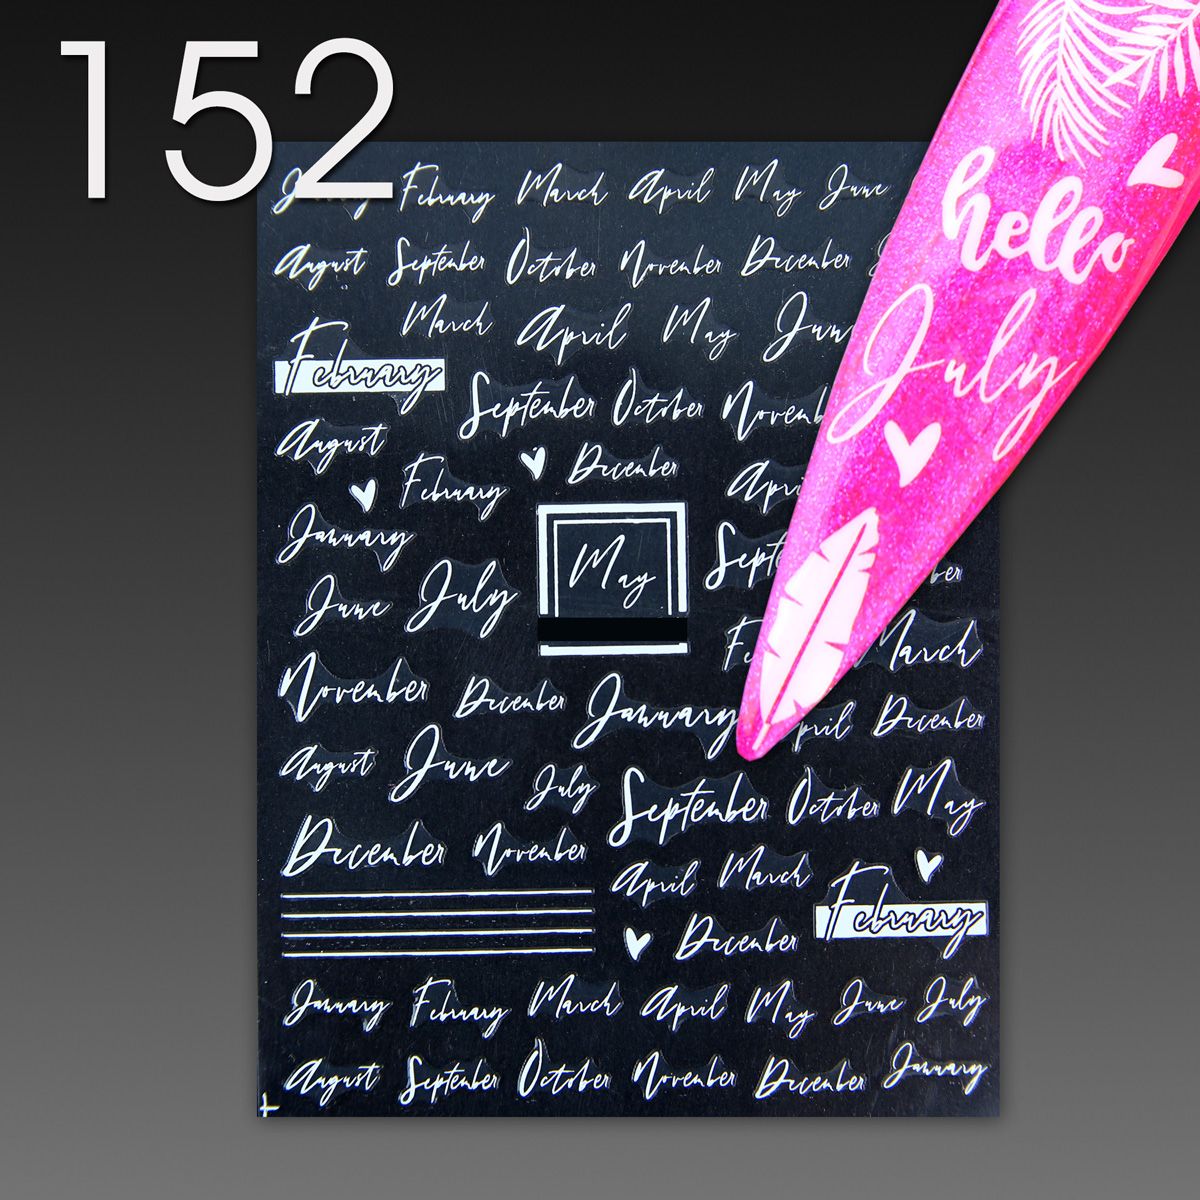 152
February March April May June
August September October November December
March April May
February
September October
August
December
February
January
May
June July
March
November December January December
August June
July
September October May
December November
April March
February
December
January February March April May June July
August September October November December January
hello
July